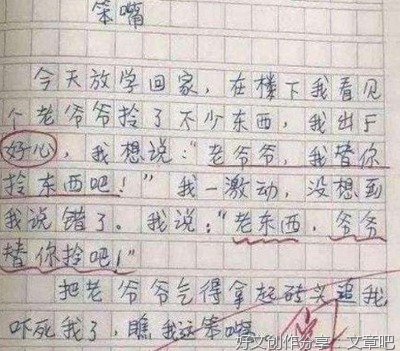 笨嘴
今天放学回家，在楼下我看见
个老爷爷拎了不少东西，我出于
好心，我想说："老爷爷，我替你
拎东西吧！"我一激动，没想到
我说错了。我说："老东西，爷爷
替你拎吧！"
把老爷爷气得拿起砖头追我
吓死我了，瞧我这笨嘴。
好文创作分享-文章吧